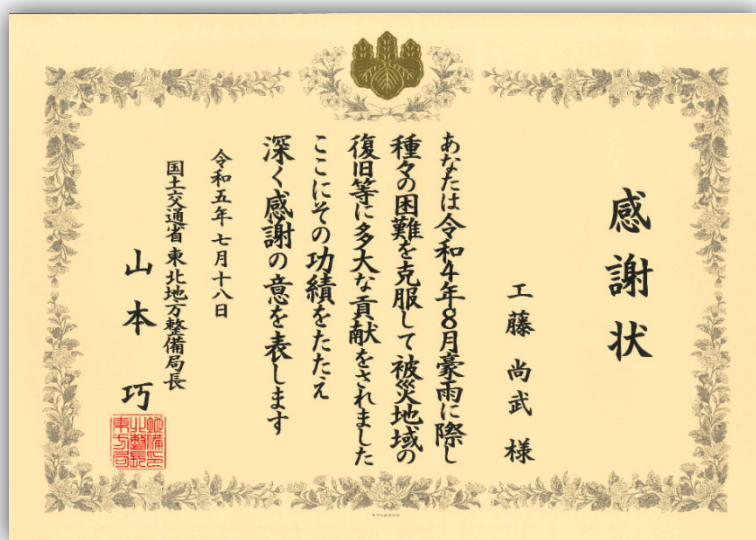 感謝状
工藤尚武様
あなたは令和4年8月豪雨に際し
種々の困難を克服して被災地域の
復旧等に多大な貢献をされました
ここにその功績をたたえ
深く感謝の意を表します
令和五年七月十八日
国土交通省東北地方整備局長
山本巧